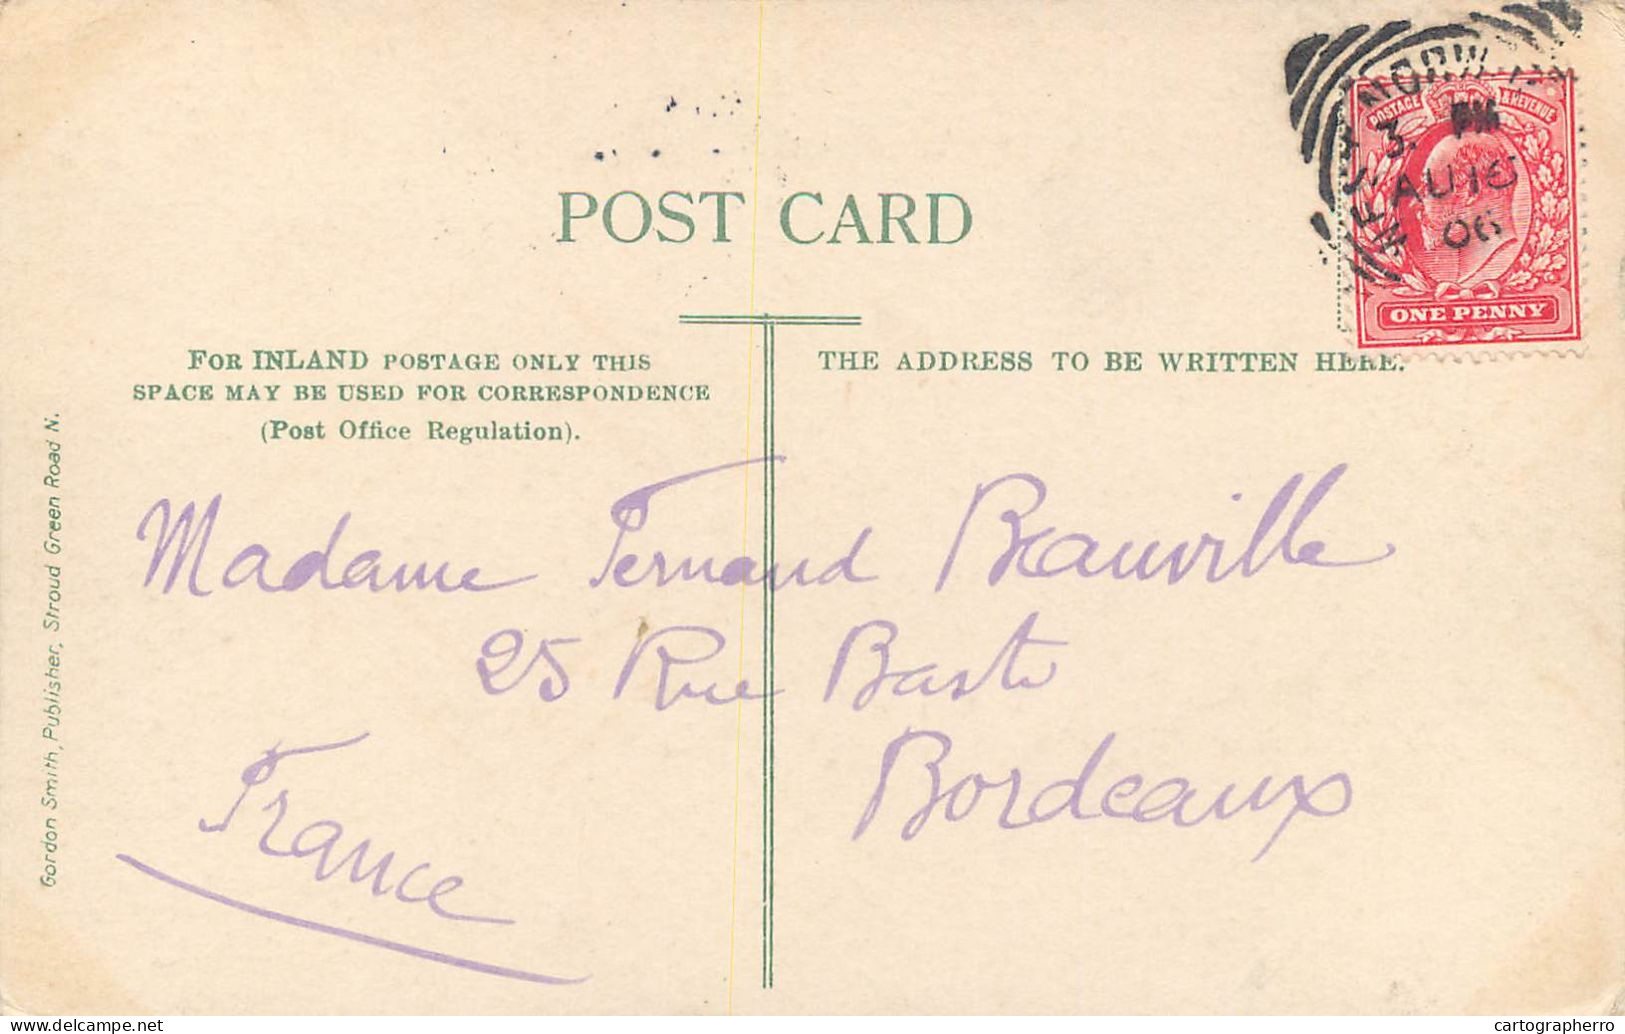 POST CARD
POSTAGE & REVENUE
3. PM
AU 16
06
ONE PENNY
FOR INLAND POSTAGE ONLY THIS
SPACE MAY BE USED FOR CORRESPONDENCE
(Post Office Regulation).
THE ADDRESS TO BE WRITTEN HERE.
Madame Fernand Beauville
25 Rue
Bordeaux
France
Gordon Smith, Publisher, Stroud Green Road N.
cartographerro cartographerro.delcampe.net